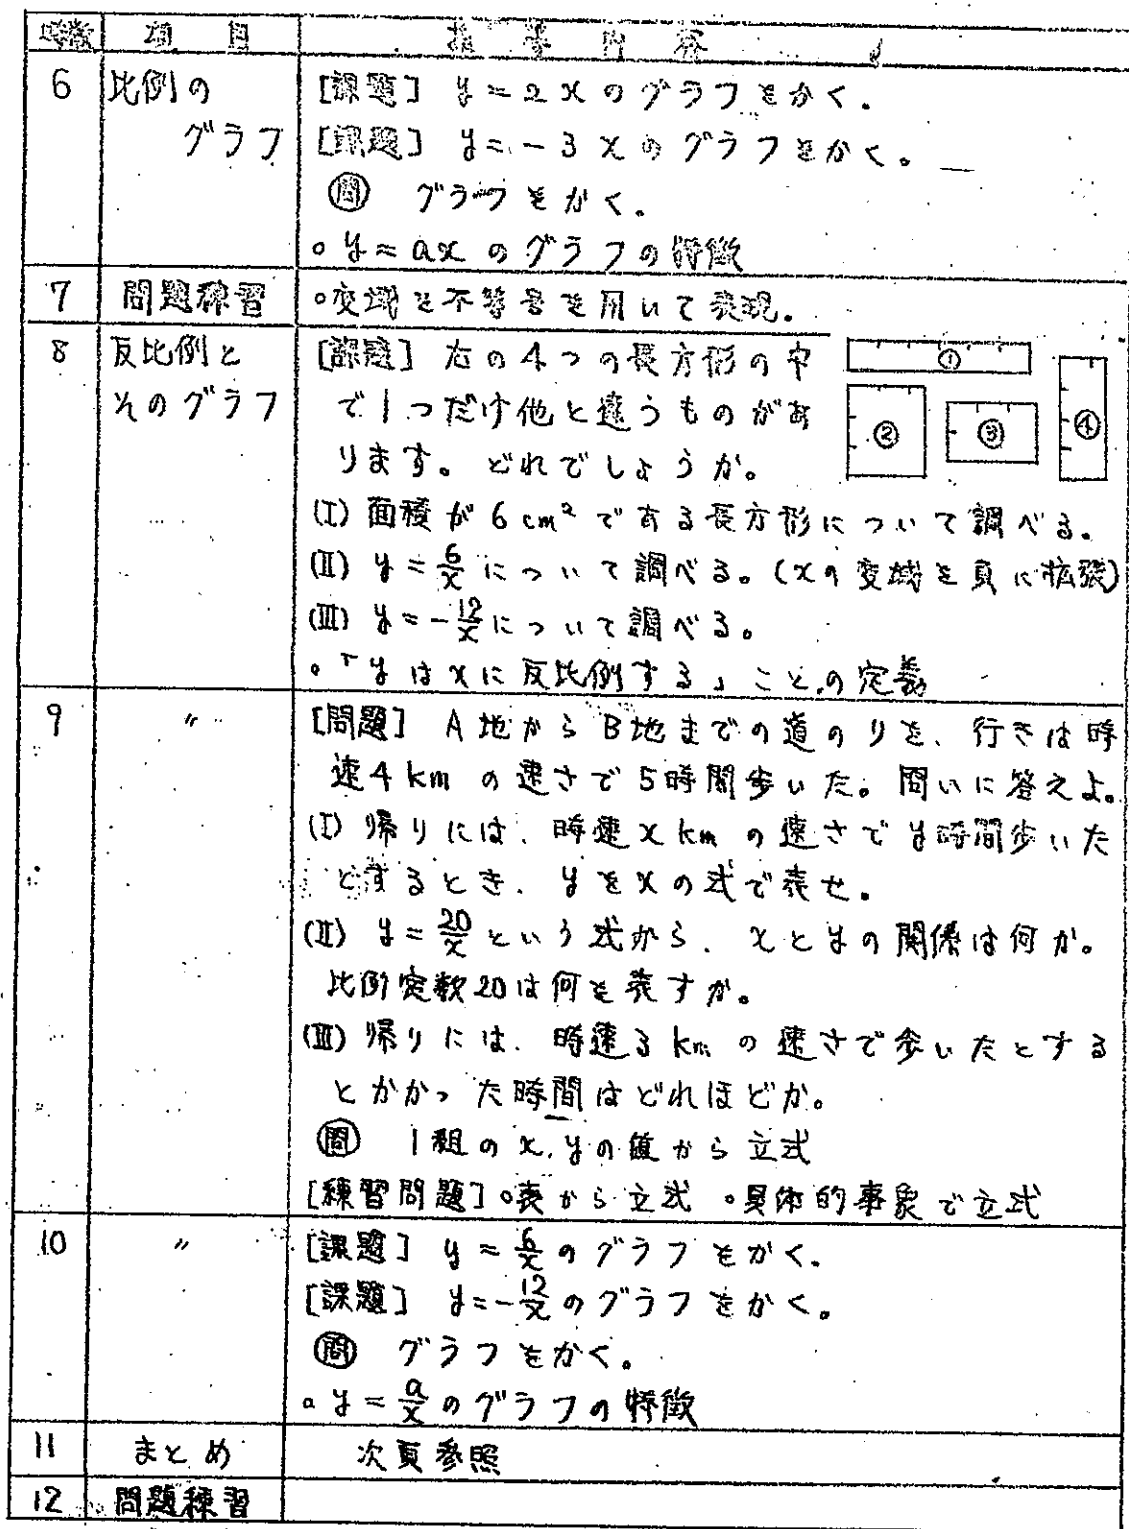 時数 項 目 指 導 内 容
6 比例の [課題] y=2xのグラフをかく。
グラフ [課題] y=-3xのグラフをかく。
㉄ グラフをかく。
○y=axのグラフの特徴
7 問題練習 ○変域を不等号を用いて表現。
8 反比例と [課題] 右の4つの長方形の中
そのグラフ で1つだけ他と違うものがあ
ります。どれでしょうか。
① ② ③ ④
(I) 面積が6cm²である長方形について調べる。
(II) y=6/xについて調べる。(xの変域を負に拡張)
(III) y=-12/xについて調べる。
○「yはxに反比例する」ことの定義
9 〃 [問題] A地からB地までの道のりを、行きは時
速4kmの速さで5時間歩いた。問いに答えよ。
(I) 帰りには、時速xkmの速さでy時間歩いた
とするとき、yをxの式で表せ。
(II) y=20/xという式から、xとyの関係は何か。
比例定数20は何を表すか。
(III) 帰りには、時速3kmの速さで歩いたとする
とかかった時間はどれほどか。
㉄ 1組のx,yの値から立式
[練習問題]○表から立式 ○具体的事象で立式
10 〃 [課題] y=6/xのグラフをかく。
[課題] y=-12/xのグラフをかく。
㉄ グラフをかく。
○y=a/xのグラフの特徴
11 まとめ 次頁参照
12 問題練習